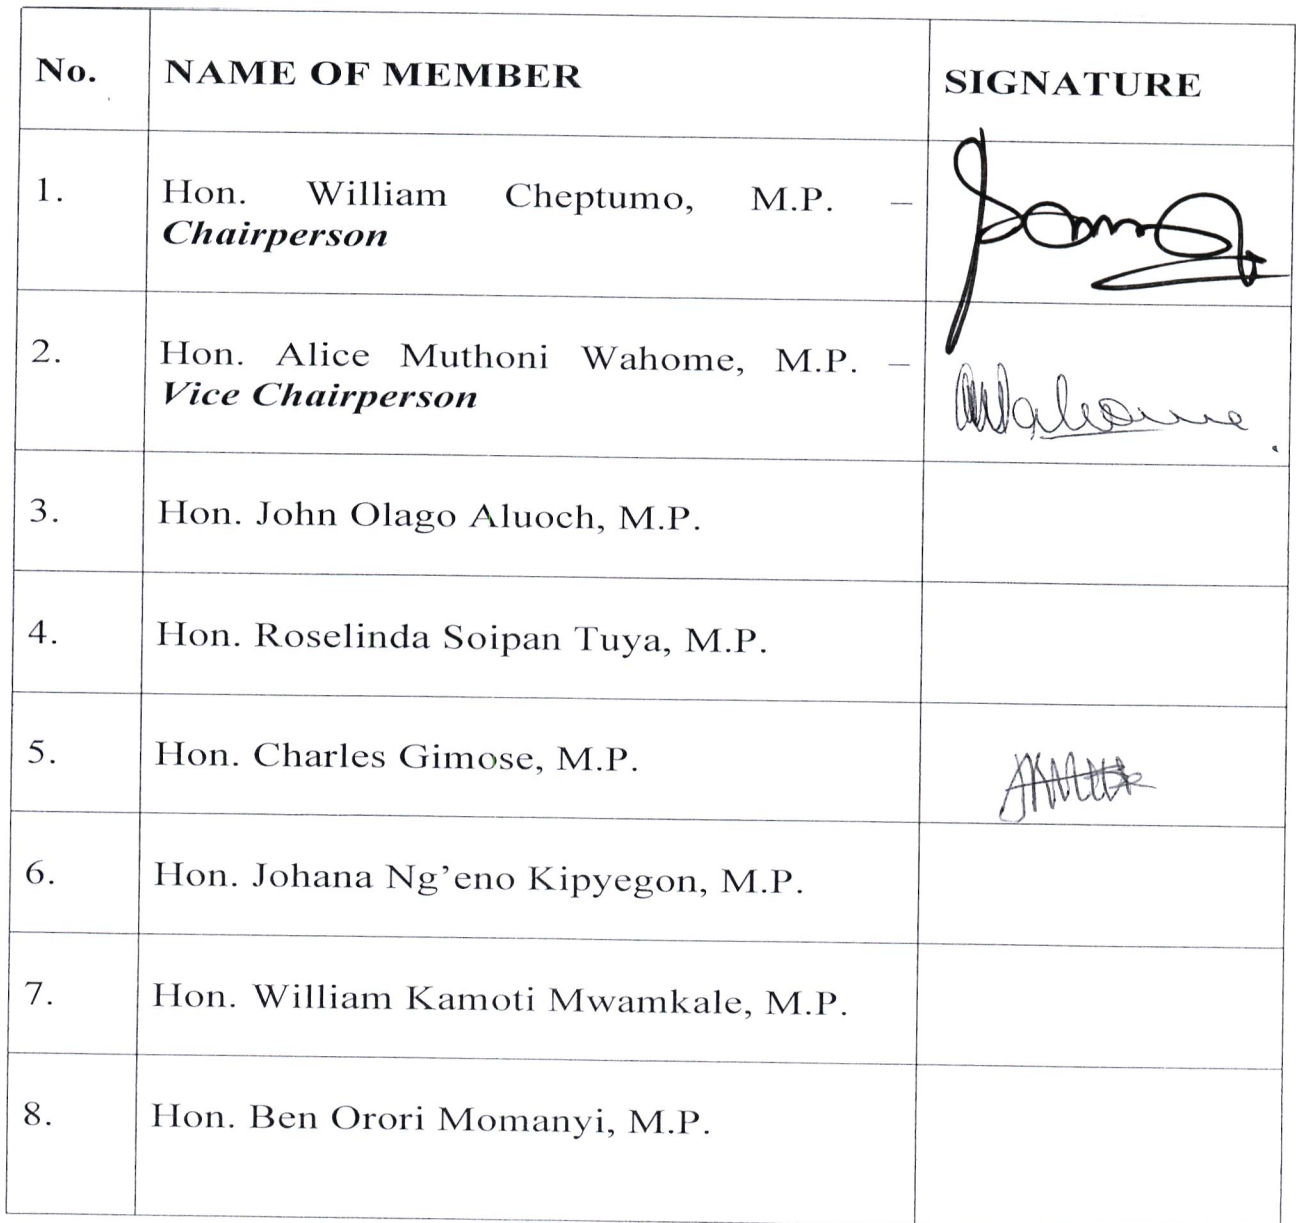 No. NAME OF MEMBER SIGNATURE
1. Hon. William Cheptumo, M.P. –
Chairperson
2. Hon. Alice Muthoni Wahome, M.P. –
Vice Chairperson
AWahome
3. Hon. John Olago Aluoch, M.P.
4. Hon. Roselinda Soipan Tuya, M.P.
5. Hon. Charles Gimose, M.P.
6. Hon. Johana Ng’eno Kipyegon, M.P.
7. Hon. William Kamoti Mwamkale, M.P.
8. Hon. Ben Orori Momanyi, M.P.